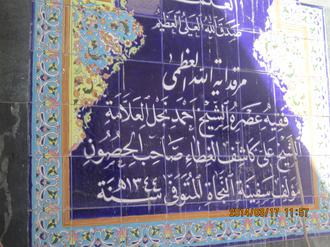 صدق الله العلي العظيم
مرقد آية الله العظمى
فقيه عصره الشيخ احمد نجل العلامة
الشيخ علي كاشف الغطاء صاحب الحصون
مؤلف سفينة النجاة المتوفى سنة ١٣٤٤هـ
2014/03/17 11:57